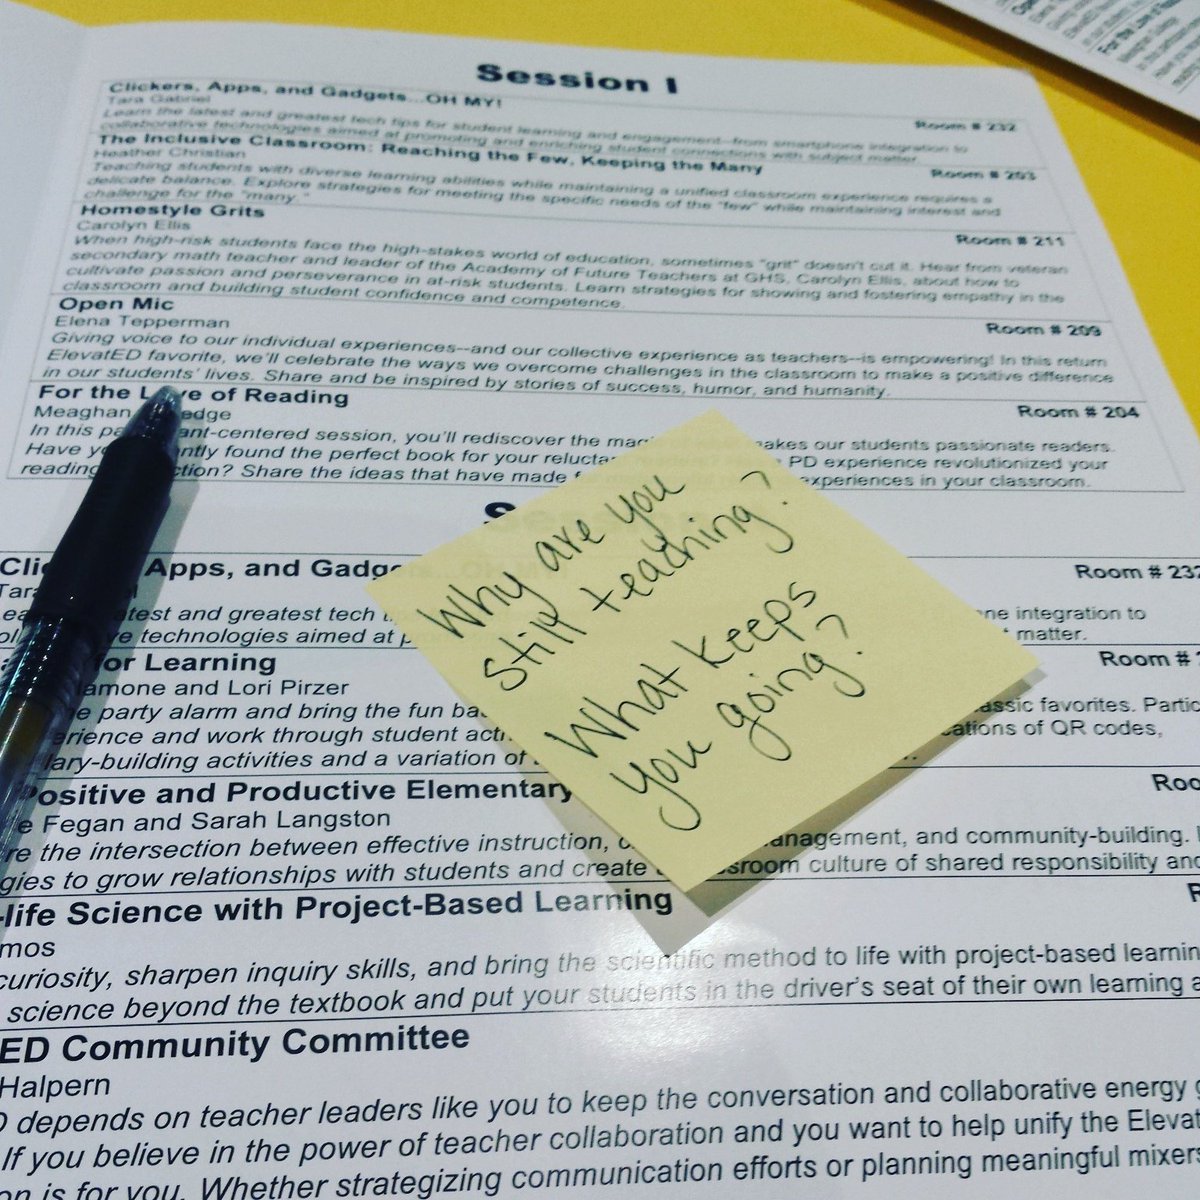 Session I
Clickers, Apps, and Gadgets...OH MY!
Tara Gabriel
Room # 232
Learn the latest and greatest tech tips for student learning and engagement--from smartphone integration to
collaborative technologies aimed at promoting and enriching student connections with subject matter.
The Inclusive Classroom: Reaching the Few, Keeping the Many
Heather Christian
Room # 203
Teaching students with diverse learning abilities while maintaining a unified classroom experience requires a
delicate balance. Explore strategies for meeting the specific needs of the "few" while maintaining interest and
challenge for the "many."
Homestyle Grits
Carolyn Ellis
Room # 211
When high-risk students face the high-stakes world of education, sometimes "grit" doesn't cut it. Hear from veteran
secondary math teacher and leader of the Academy of Future Teachers at GHS, Carolyn Ellis, about how to
cultivate passion and perseverance in at-risk students. Learn strategies for showing and fostering empathy in the
classroom and building student confidence and competence.
Open Mic
Elena Tepperman
Room # 209
Giving voice to our individual experiences--and our collective experience as teachers--is empowering! In this return
ElevatED favorite, we'll celebrate the ways we overcome challenges in the classroom to make a positive difference
in our students' lives. Share and be inspired by stories of success, humor, and humanity.
For the Love of Reading
Meaghan
Room # 204
In this centered session, you'll rediscover the makes our students passionate readers.
Have found the perfect book for your PD experience revolutionized your
reading Share the ideas that have made experiences in your classroom.
Why are you
still teaching?
What keeps
you going?
Apps, and Gadgets...OH MY!
Room # 232
and greatest tech integration to
technologies aimed at matter.
for Learning
Room #
and Lori Pirzer
party alarm and bring the fun favorites.
and work through student of QR codes,
activities and a variation of
Positive and Productive Elementary
Fegan and Sarah Langston
the intersection between effective instruction, and community-building.
to grow relationships with students and create culture of shared responsibility and
-life Science with Project-Based Learning
curiosity, sharpen inquiry skills, and bring the scientific method to life with project-based learning
science beyond the textbook and put your students in the driver's seat of their own learning
ED Community Committee
Halpern
depends on teacher leaders like you to keep the conversation and collaborative energy
If you believe in the power of teacher collaboration and you want to help unify the
is for you. Whether strategizing communication efforts or planning meaningful mixers